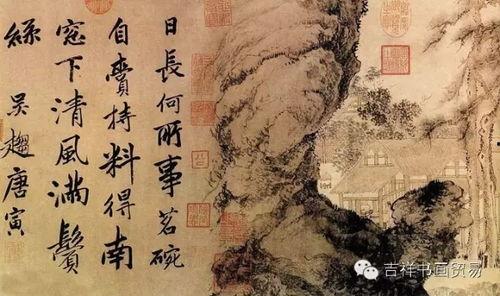 日長何所事茗碗
自賫持料得南
窓下清風滿鬢
絲
吳趨唐寅
吉祥书画贸易